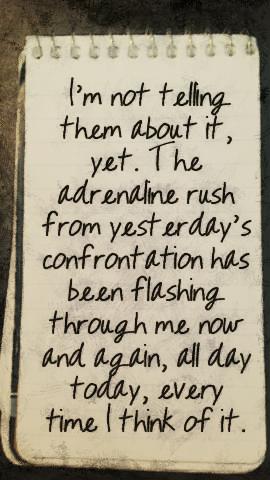 I'm not telling
them about it,
yet. The
adrenaline rush
from yesterday's
confrontation has
been flashing
through me now
and again, all day
today, every
time I think of it.